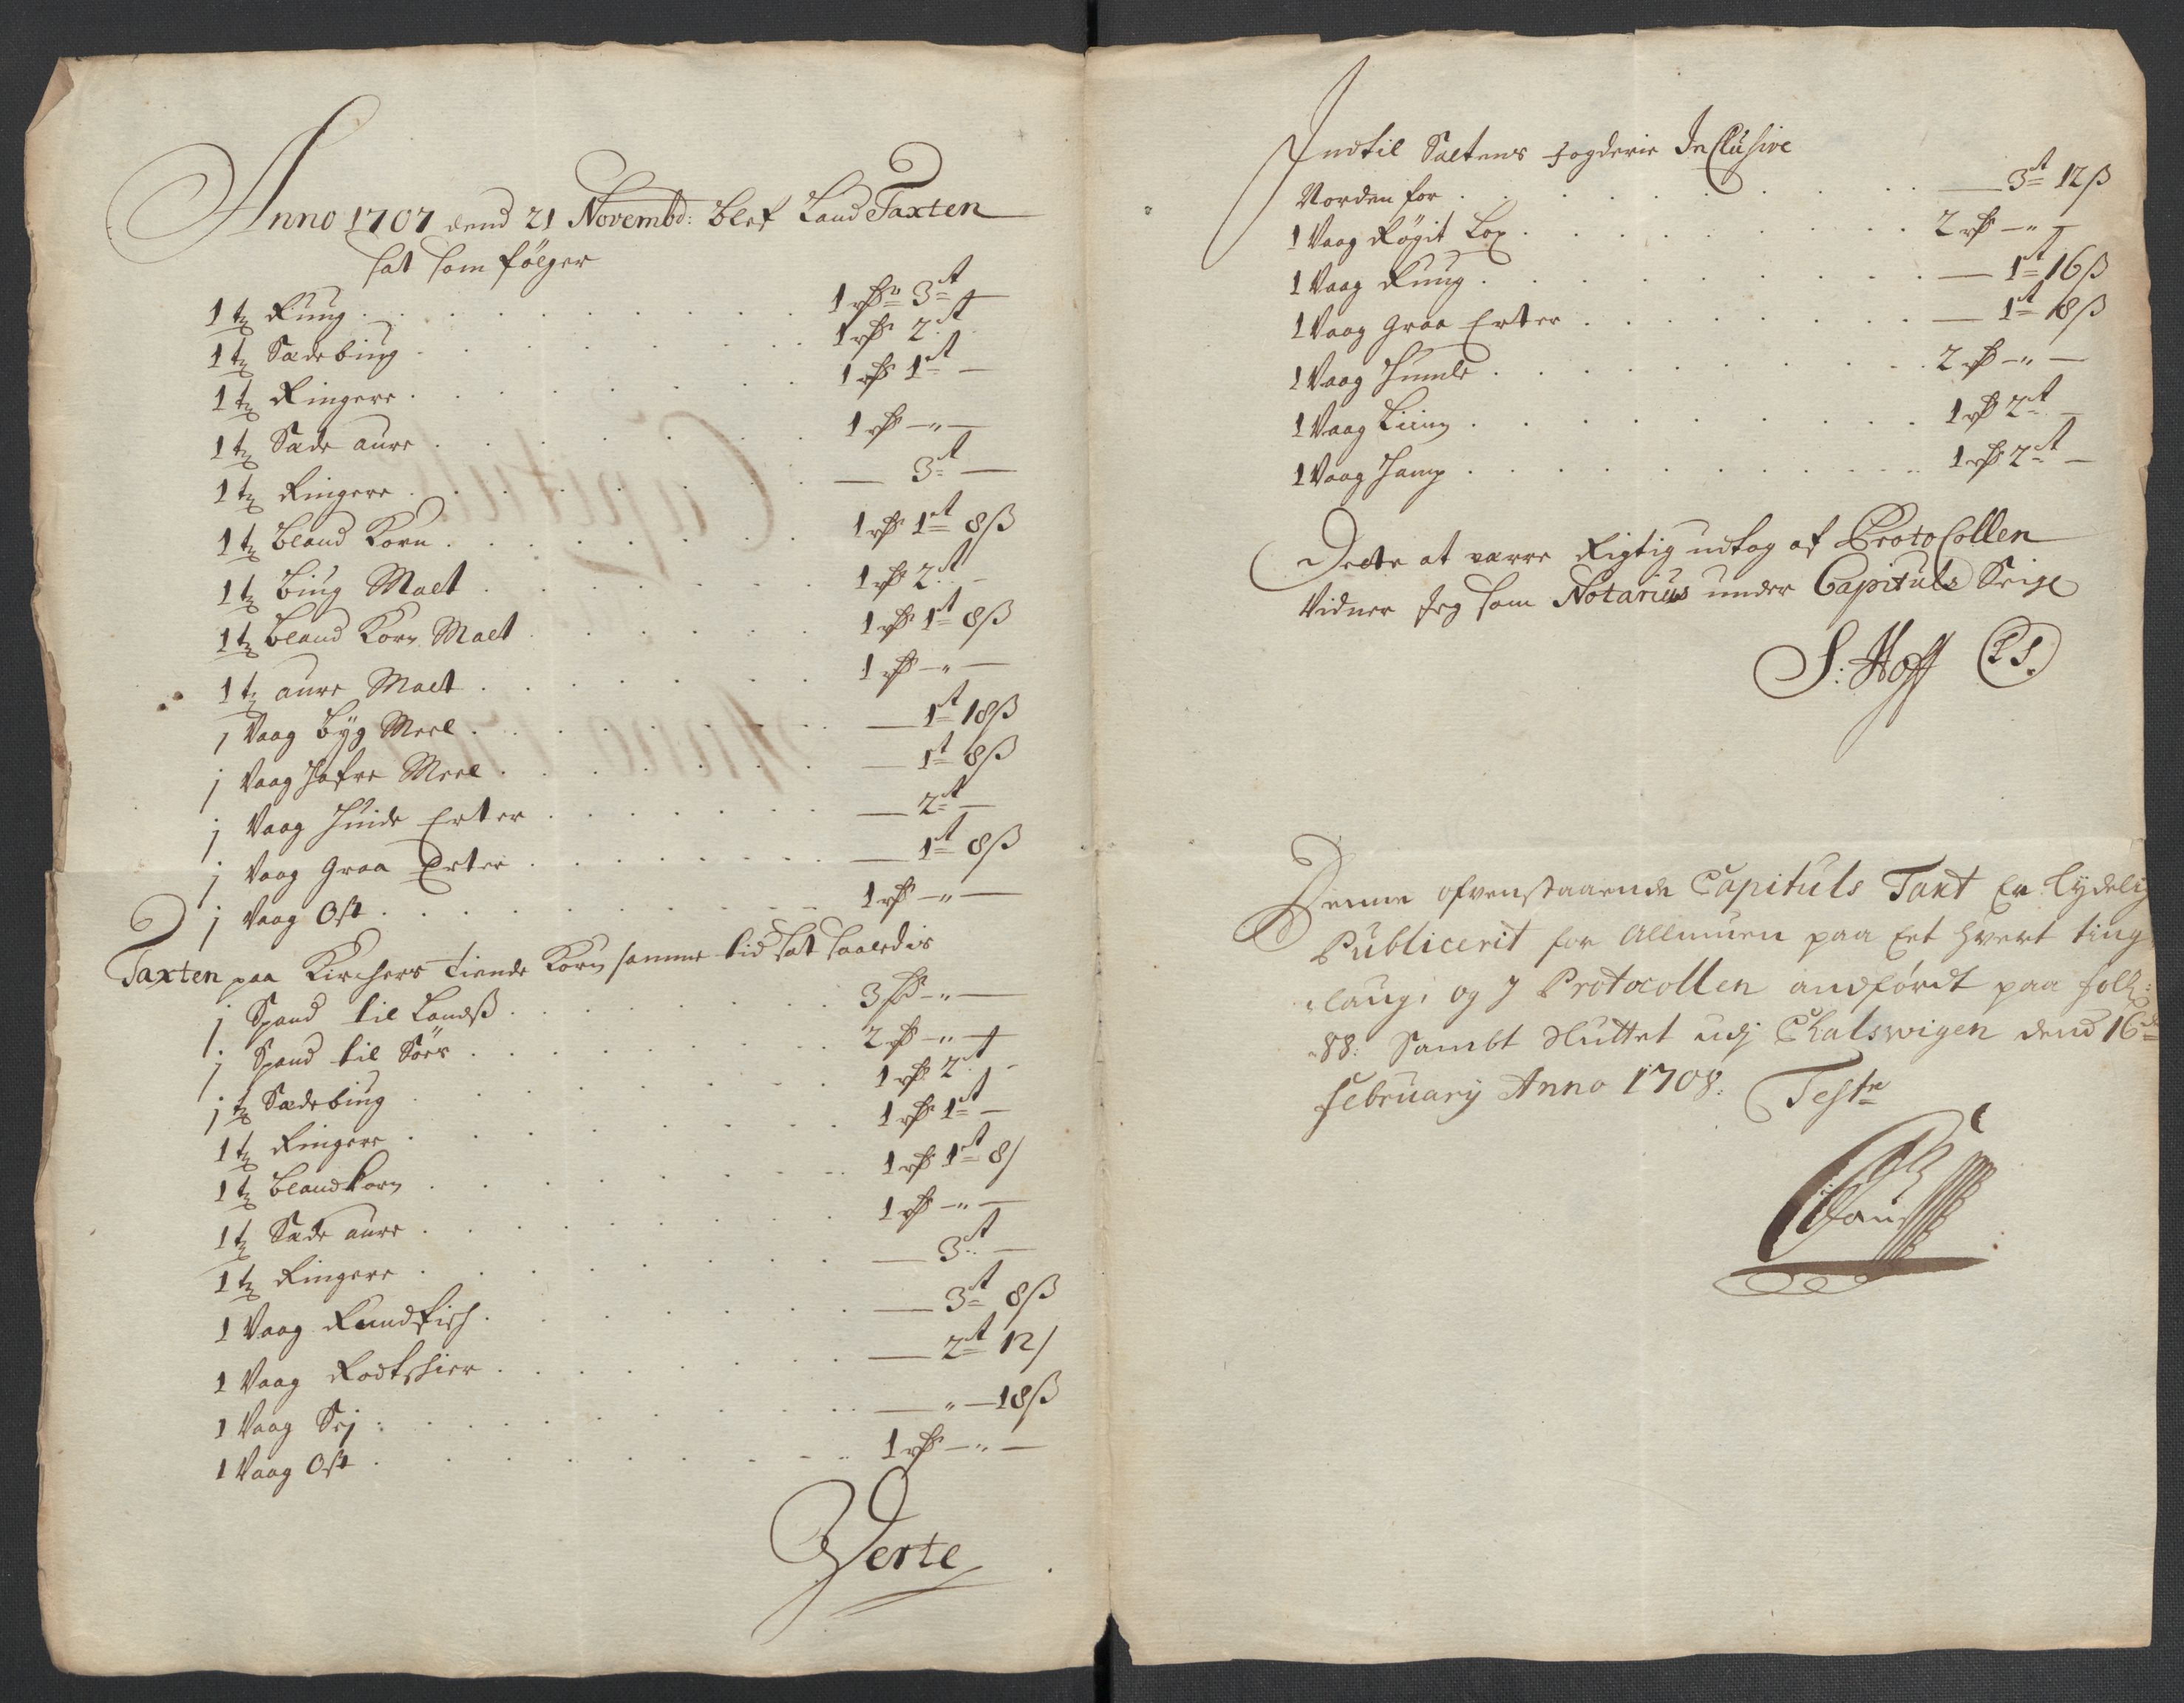 Anno 1707 dend 21 Novembd: blef Land Taxten
sat som følger
1 tø Rúug . . . . . . . . . 1 rdr 3 ort —
1 tø Sædebiúg . . . . . . . . . 1 rdr 2 ort
1 tø Ringere . . . . . . . . . 1 rdr 1 ort —
1 tø Sæde aure . . . . . . . . . 1 rdr — „ —
1 tø Ringere . . . . . . . . . — 3 ort —
1 tø bland Korn . . . . . . . . . 1 rdr 1 ort 8 ß
1 tø biúg Malt . . . . . . . . . 1 rdr 2 ort -
1 tø bland Korn Malt . . . . . . . 1 rdr 1 ort 8 ß
1 tø aure Malt . . . . . . . . . 1 rdr — „ —
1 Vaag byg Meel . . . . . . . . . — 1 ort 18 ß
j Vaag Hafre Meel . . . . . . . . . — 1 ort 8 ß
j Vaag Huide Erter . . . . . . . — 2 ort —
j Vaag Graa Erter . . . . . . . — 1 ort 8 ß
j Vaag Ost . . . . . . . . . 1 rdr — „ —
Taxten paa Kirchers tiende Korn samme tid sat saaledis
j Spand til Landß . . . . . . . 3 rdr — „ —
j Spand til Søes . . . . . . . 2 rdr — „ —
j tø Sædebiúg . . . . . . . . . 1 rdr 2 ort -
1 tø Ringere . . . . . . . . . 1 rdr 1 ort —
1 tø blandkorn . . . . . . . . . 1 rdr 1 ort 8 /
1 tø Sæde aure . . . . . . . . . 1 rdr — „ —
1 tø Ringere . . . . . . . . . — 3 ort —
1 Vaag Rundfisch . . . . . . . — 3 ort 8 ß
1 Vaag Rodtschier . . . . . . . — 2 ort 12 /
1 Vaag Sej : . . . . . . . . . — „ — 18 ß
1 Vaag Ost . . . . . . . . . 1 rdr — „ —
Verte
Indtil Saltens fogderie Inclusive
Norden for . . . . . . . . . — 3 ort 12 ß
1 Vaag Røgit Lax . . . . . . . . . 2 rdr — „ —
1 Vaag Rúug . . . . . . . . . — 1 ort 16 ß
1 Vaag Graa Erter . . . . . . . — 1 ort 18 ß
1 Vaag Humle . . . . . . . . . 2 rdr — „ —
1 Vaag Liin . . . . . . . . . 1 rdr 2 ort —
1 Vaag Hamp . . . . . . . . . 1 rdr 2 ort —
Dette at være Rigtig udtog af Protocollen
Vidner Jeg som Notarius under Capituls Seigl
S: Hoff (LS.)
Denne ofvenstaaende Capituls Taxt Er lydelig
Publicerit for Allmuen paa Eet hvert ting
laug, og j Protocollen andførdt paa foll:
88: Sambt Sluttet udj Chalswigen dend 16de
February Anno 1708: Teste